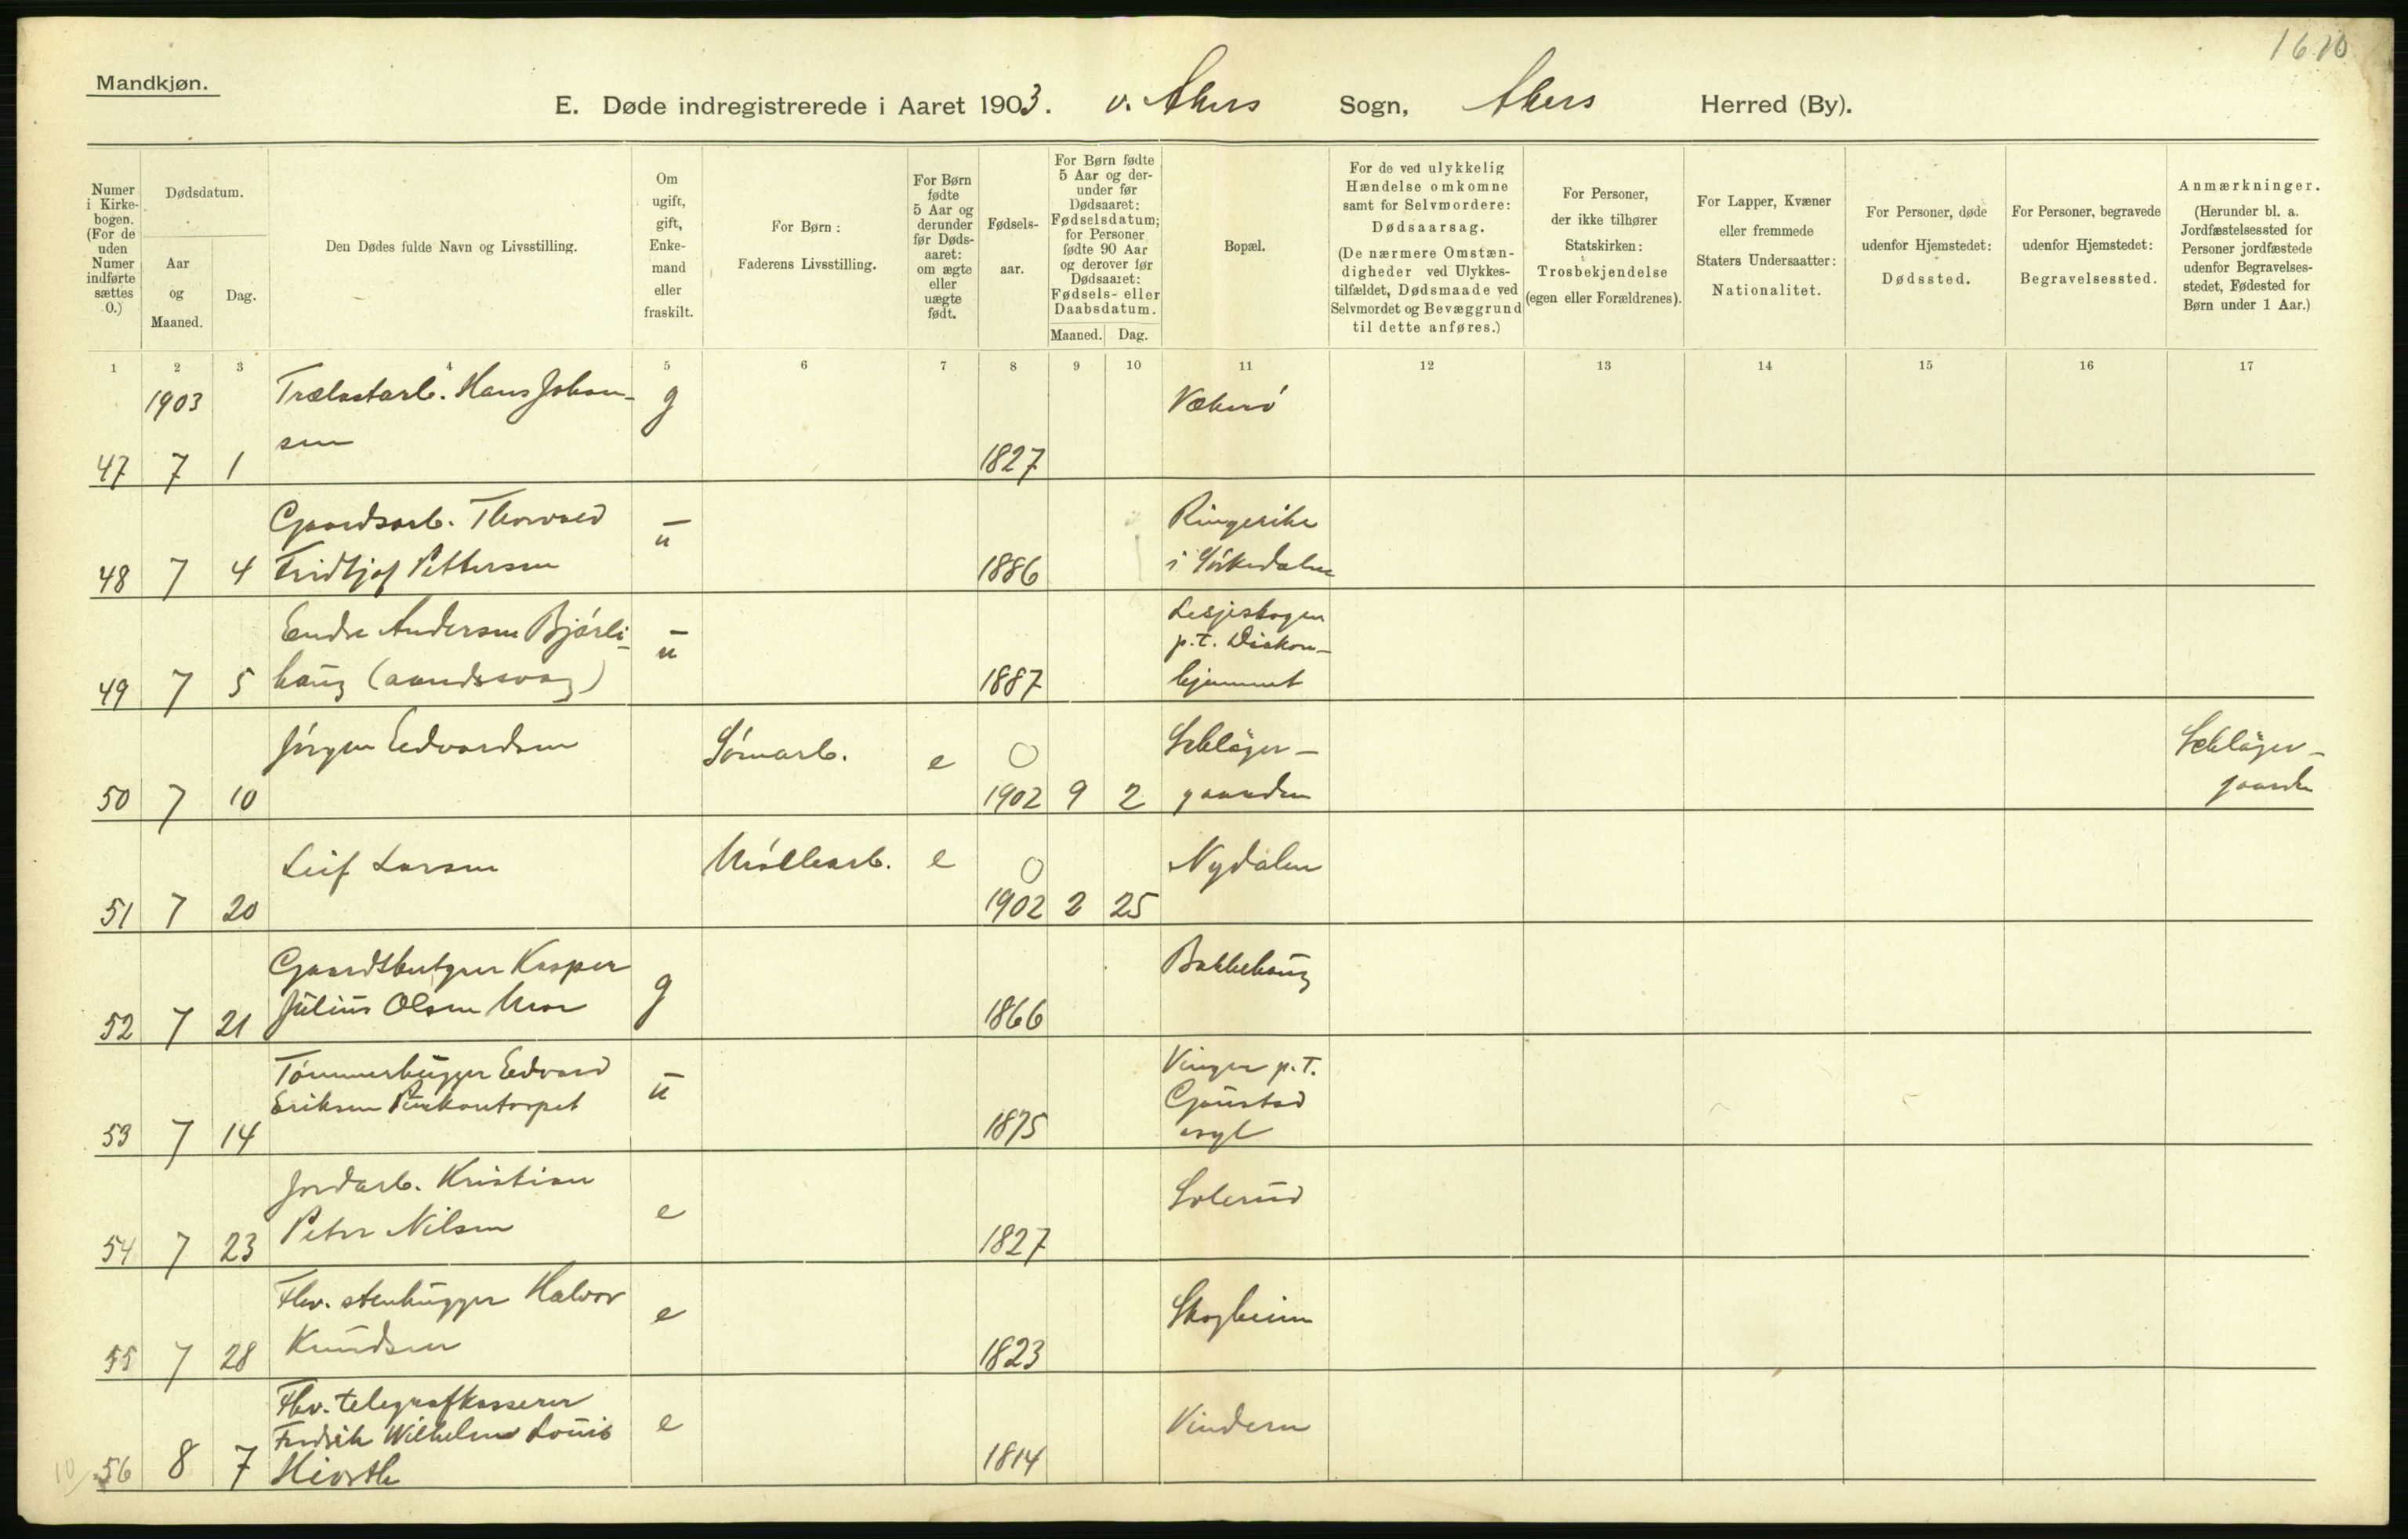 1610
Mandkjøn.
E. Døde indregistrerede i Aaret 1903. v. Akers Sogn, Akers Herred (By).
Numer i Kirkebogen. (For de uden Numer indførte sættes 0.)
Dødsdatum.
Aar og Maaned.
Dag.
Den Dødes fulde Navn og Livsstilling.
Om ugift, gift, Enkemand eller fraskilt.
For Børn: Faderens Livsstilling.
For Børn fødte 5 Aar og derunder før Dødsaaret: om ægte eller uægte født.
Fødselsaar.
For Børn fødte 5 Aar og derunder før Dødsaaret: Fødselsdatum; for Personer fødte 90 Aar og derover før Dødsaaret: Fødsels- eller Daabsdatum.
Maaned. Dag.
Bopæl.
For de ved ulykkelig Hændelse omkomne samt for Selvmordere: Dødsaarsag. (De nærmere Omstændigheder ved Ulykkestilfældet, Dødsmaade ved Selvmordet og Bevæggrund til dette anføres.)
For Personer, der ikke tilhører Statskirken: Trosbekjendelse (egen eller Forældrenes).
For Lapper, Kvæner eller fremmede Staters Undersaatter: Nationalitet.
For Personer, døde udenfor Hjemstedet: Dødssted.
For Personer, begravede udenfor Hjemstedet: Begravelsessted.
Anmærkninger. (Herunder bl. a. Jordfæstelsessted for Personer jordfæstede udenfor Begravelsesstedet, Fødested for Børn under 1 Aar.)
1 2 3 4 5 6 7 8 9 10 11 12 13 14 15 16 17
1903 Trælastarb. Hans Johan- g Vækerö
sen
47 7 1 1827
Gaardsarb. Thorvald ū Ringerike
48 7 4 Fridtjof Pettersen 1886 i Sörkedalen
Endre Andersen Bjørli- ū Lesjeskogen
p.t. Diakon-
49 7 5 haug (aandssvag) 1887 hjemmet
Jörgen Edvardsen Sömarb. e 0 Schläger- Schläger-
50 7 10 1902 9 2 gaarden gaarden
Leif Larsen Möllearb. e 0 Nydalen
51 7 20 1902 2 25
Gaardsbestyrer Kasper g Bakkehaug
52 7 21 Julius Olsen Moe 1866
Tömmerhugger Edvard ū Vinger p.t.
Eriksen Gaustad
53 7 14 1875 asyl
Jordarb. Kristian e Solerud
54 7 23 Peter Nilsen 1827
Fhv. stenhugger Halvor e Skogheim
55 7 28 Knudsen 1823
Fhv. telegrafkasserer e Vindern
Fredrik Wilhelm Louis
10/ 56 8 7 Hiorth 1814